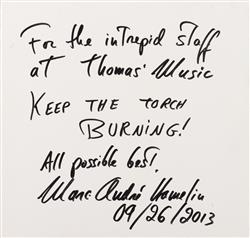 For the intrepid staff
at Thomas' Music
KEEP THE TORCH
BURNING!
All possible best!
Marc-André Hamelin
09/26/2013